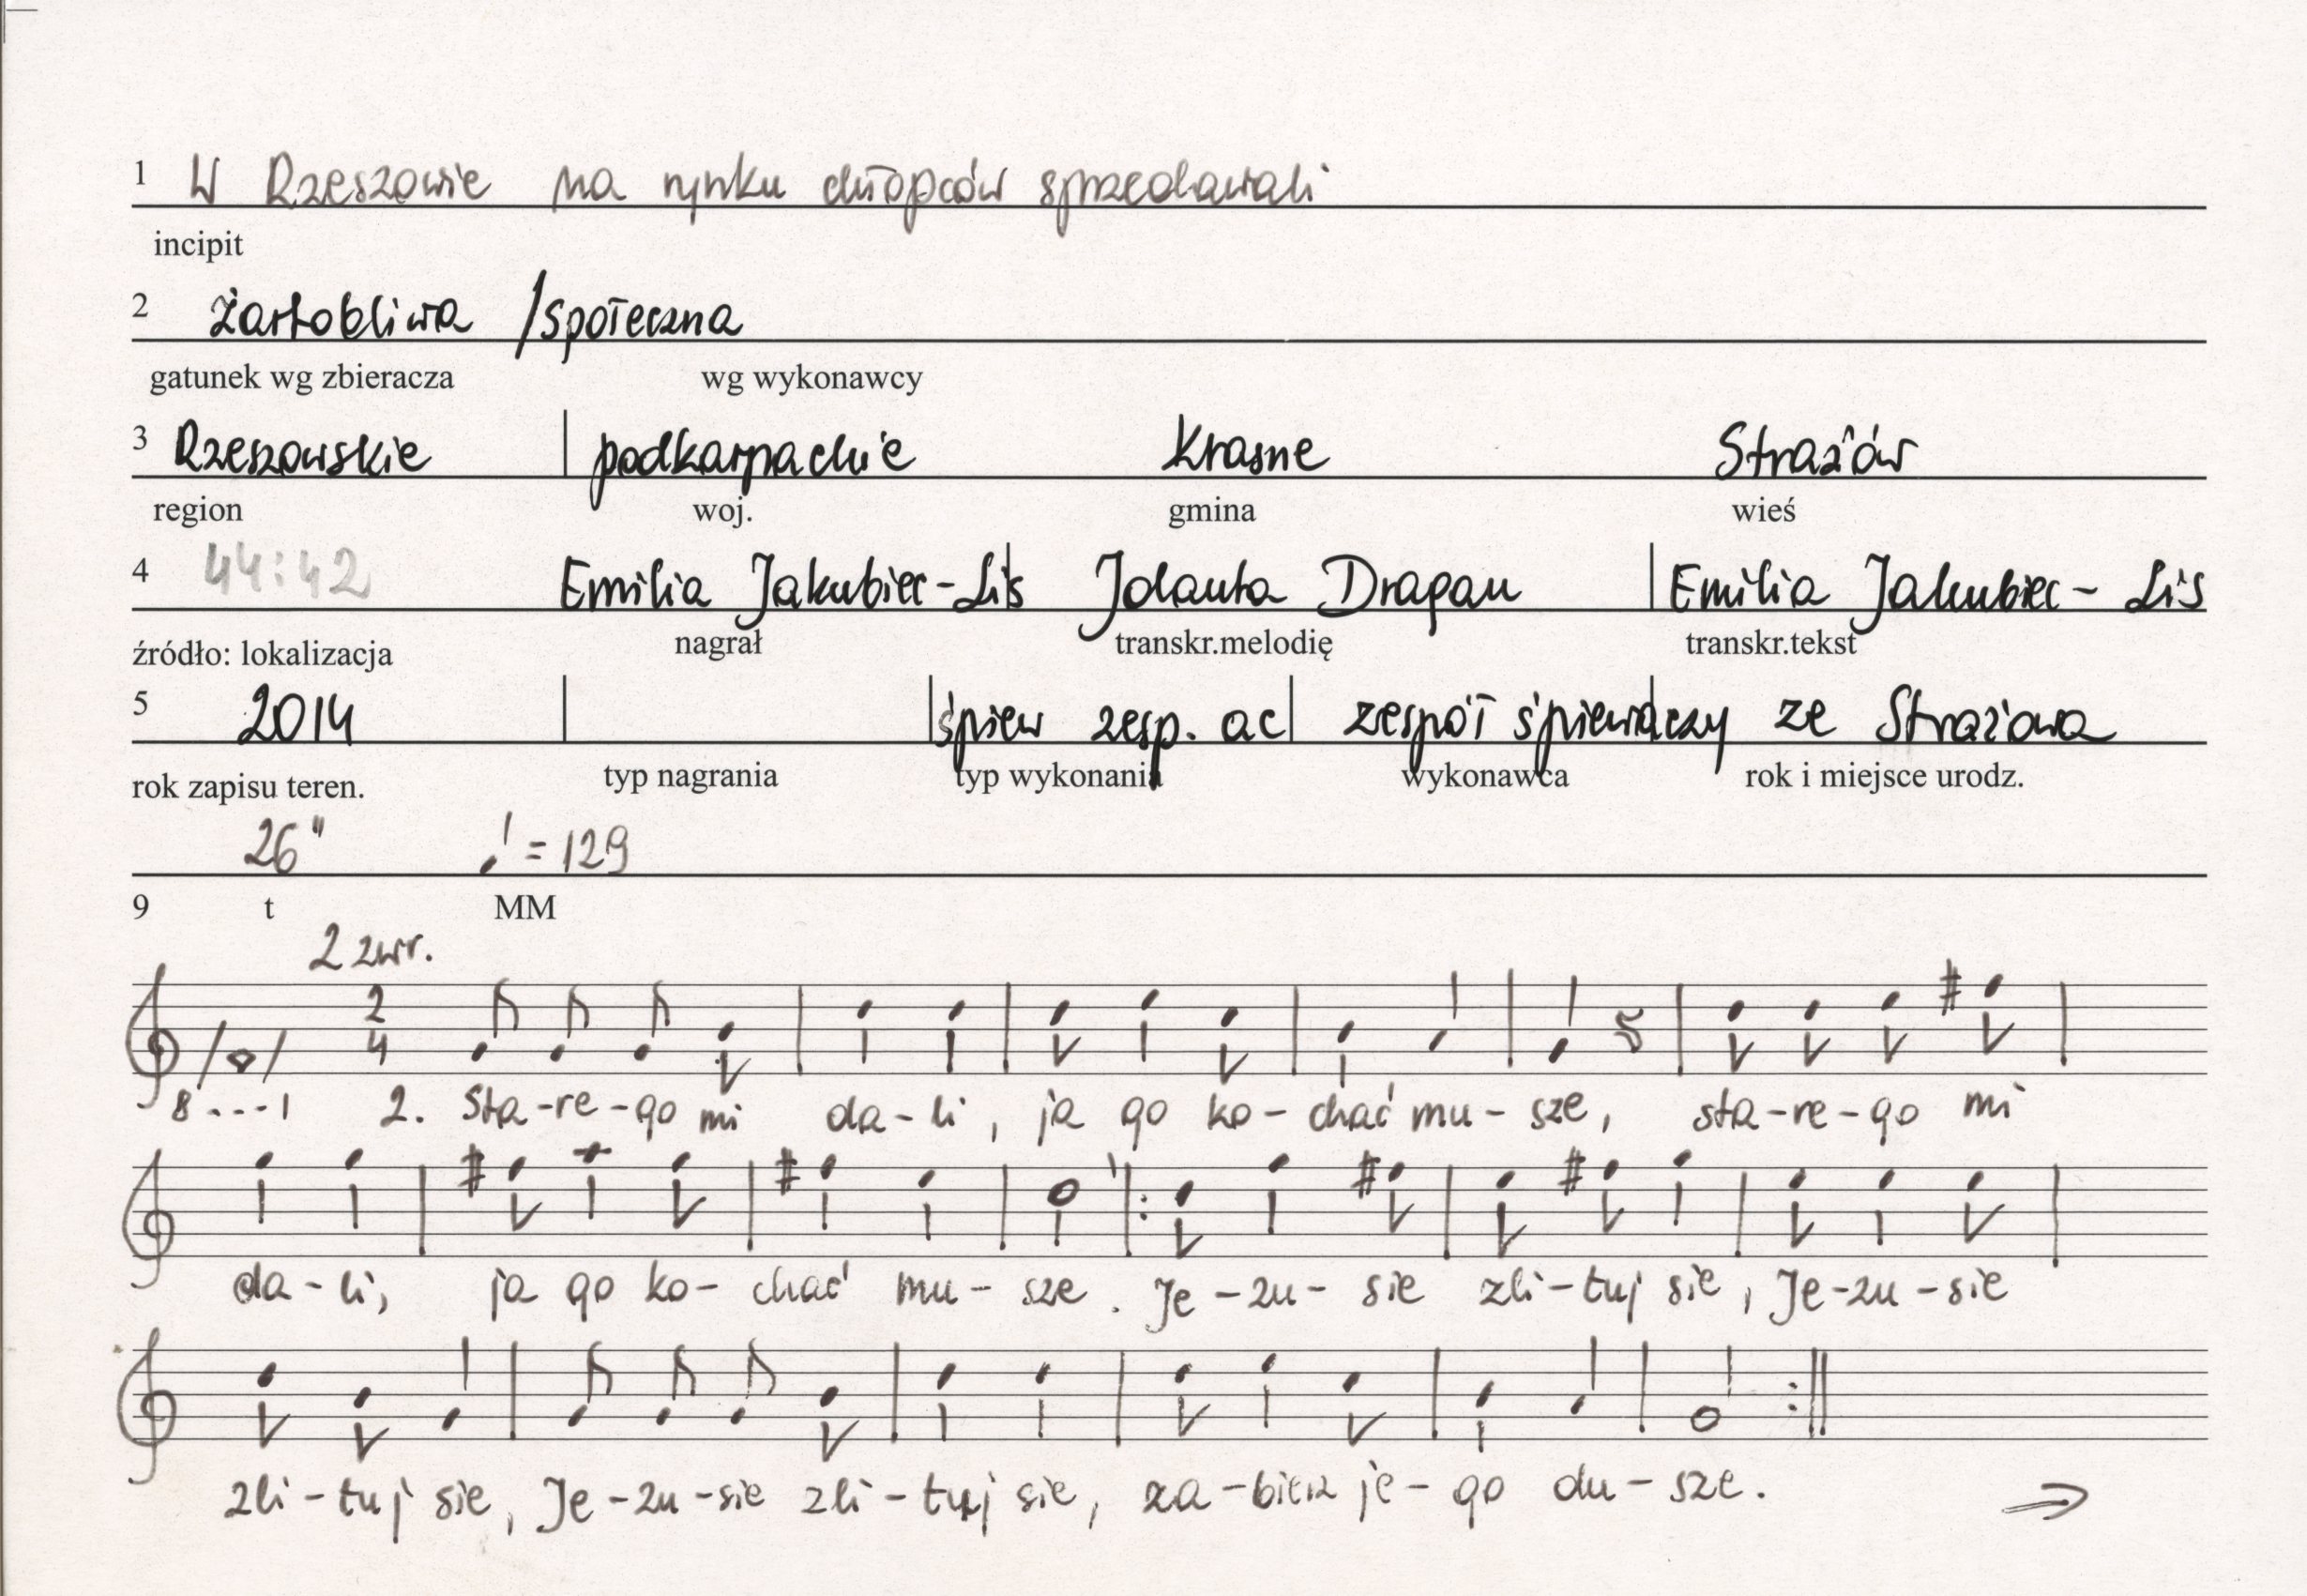 1 W Rzeszowie na rynku chłopców sprzedawali
incipit
2 żartobliwa / społeczna
gatunek wg zbieracza wg wykonawcy
3 Rzeszowskie podkarpackie Krasne Strażów
region woj. gmina wieś
4 44:42 Emilia Jakubiec-Lis Jolanta Dragan Emilia Jakubiec-Lis
źródło: lokalizacja nagrał transkr.melodię transkr.tekst
5 2014 śpiew zesp. ac zespół śpiewaczy ze Strażowa
rok zapisu teren. typ nagrania typ wykonania wykonawca rok i miejsce urodz.
26" ♩ = 129
9 t MM
2 zwr.
2
4
8---1 2. Sta-re-go mi da-li, ja go ko-chać mu-sze, sta-re-go mi
da-li, ja go ko-chać mu-sze. Je-zu-sie zli-tuj sie, Je-zu-sie
zli-tuj sie, Je-zu-sie zli-tuj sie, za-bierz je-go du-sze. ⇒